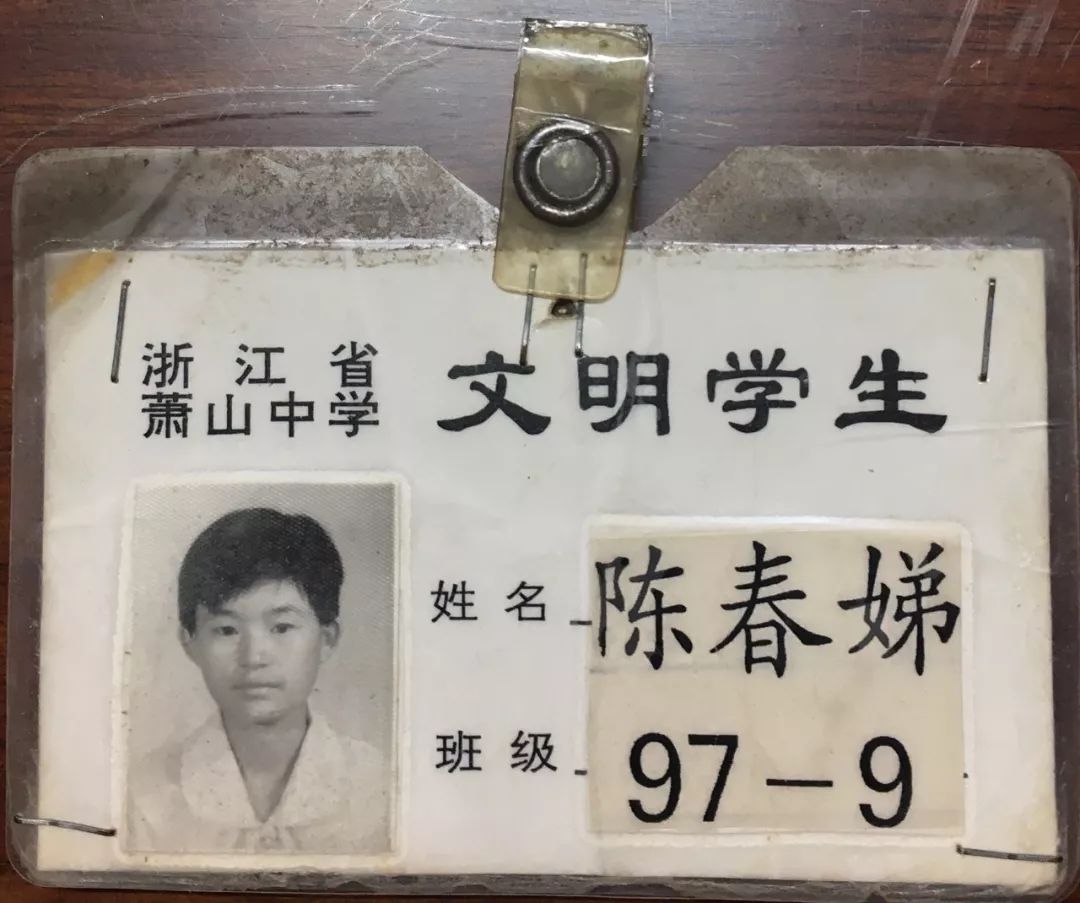 浙江省
萧山中学
文明学生
姓名 陈春娣
班级 97-9